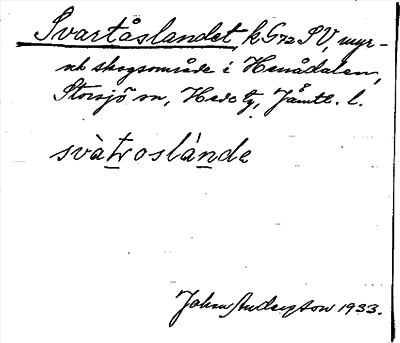 Svartåslandet, kG72 SV, myr-
och skogsområde i Henådalen,
Storsjö sn, Hede tg, Jämtl. l.
svàtroslánde
Johan Anderzson 1933.